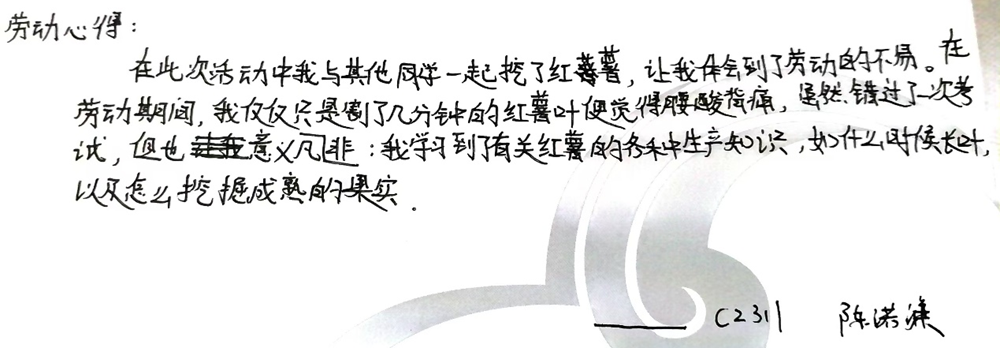 劳动心得：
在此次活动中我与其他同学一起挖了红薯，让我体会到了劳动的不易。在
劳动期间，我仅仅只是割了几分钟的红薯叶便觉得腰酸背痛，虽然错过了一次考
试，但也意义凡非：我学习到了有关红薯的各种生产知识，如什么时候长叶，
以及怎么挖掘成熟的果实.
C2311 陈诺